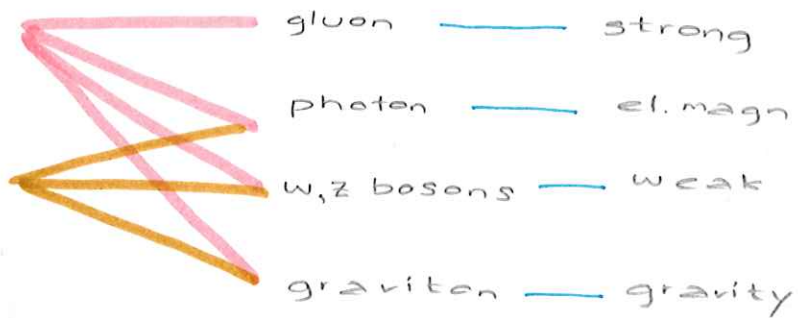 gluon strong
photon el. magn
w,z bosons weak
graviton gravity